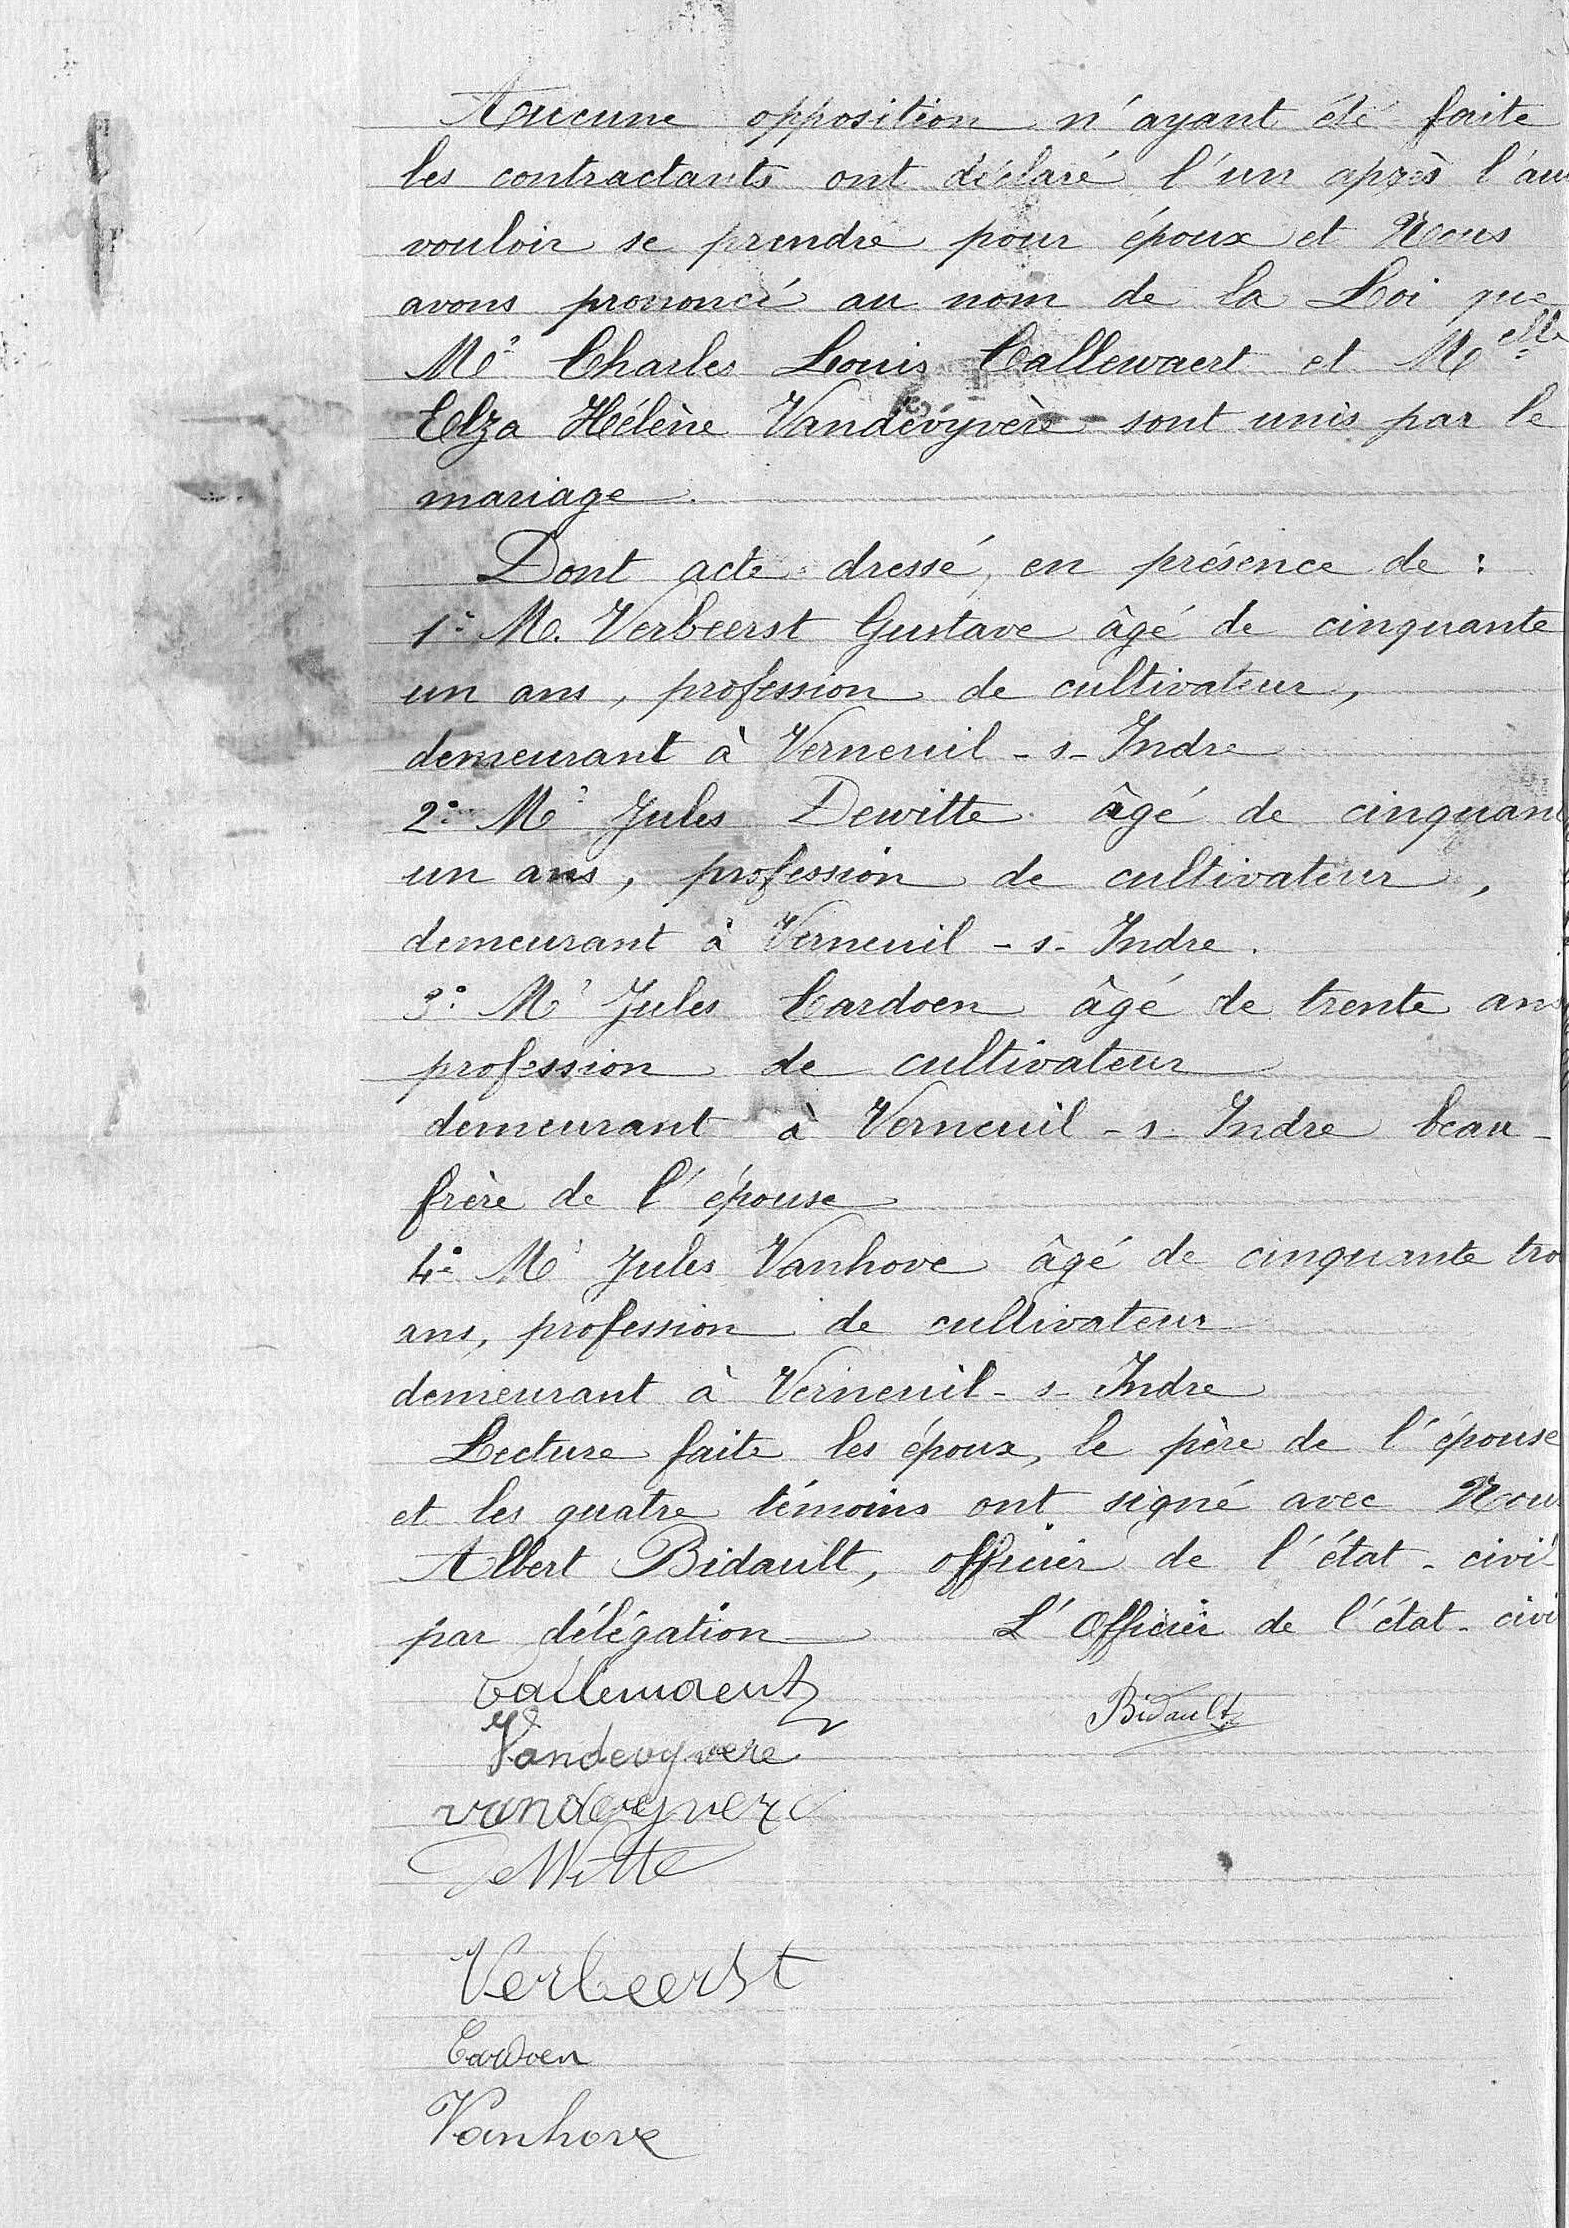 Aucune opposition n'ayant été faite
les contractants ont déclaré l'un après l'au
vouloir se prendre pour époux et Nous
avons prononcé au nom de la Loi que
Mr Charles Louis Callewaert et Melle
Elza Hélène Vandevyvère sont unis par le
mariage
Dont acte dressé, en présence de :
1° M. Verbeerst Gustave âgé de cinquante
un ans, profession de cultivateur,
demeurant à Verneuil-s-Indre
2° Mr Jules Dewitte âgé de cinquan
un ans, profession de cultivateur,
demeurant à Verneuil-s-Indre.
3° Mr Jules Cardoen âgé de trente ans
profession de cultivateur
demeurant à Verneuil-s-Indre beau-
frère de l'épouse
4° Mr Jules Vanhove âgé de cinquante tro
ans, profession de cultivateur
demeurant à Verneuil-s-Indre
Lecture faite les époux, le père de l'épouse
et les quatre témoins ont signé avec Nous
Albert Bidault, officier de l'état-civil
par délégation L'Officier de l'état-civi
Callewaert Bidault
Vandevyvere
vandevyvere
DeWitte
Verbeerst
Cardoen
Vanhove